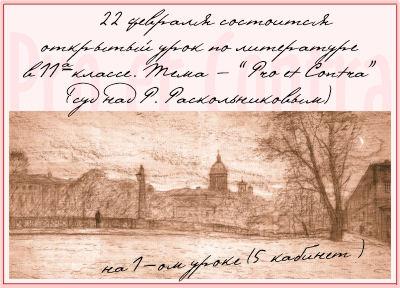 22 февраля состоится
открытый урок по литературе
в 11а классе. Тема – "Pro et Contra"
(суд над Р. Раскольниковым)
на 1-ом уроке (5 кабинет)
Pro et Contra